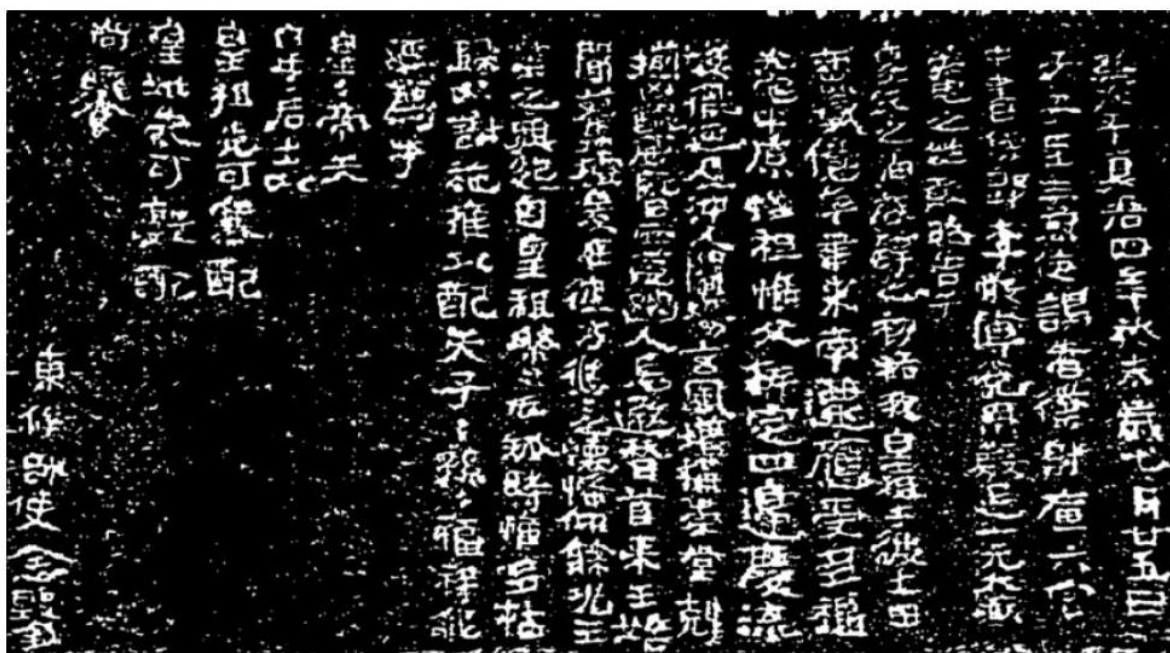 維太平真君四年癸未歲七月廿五日
天子臣燾使謁者僕射庫六官
中書侍郎李敞傅㝹用駿足一元大武
柔毛之牲敢昭告于
皇天之神啓辟之初祐我皇祖于彼土田
歷載億年聿來南遷應受多福
光宅中原惟祖惟父拓定四邊慶流
後胤延及沖人闡揚玄風增構崇堂剋
揃凶醜威暨四荒幽人忘遐稽首來王始
聞舊墟爰在彼方悠悠之懷希仰餘光王
業之興起自皇祖綿〻瓜瓞時惟多祜
歸以謝施推以配天子〻孫〻福祿永
延薦于
皇〻帝天
皇〻后土以
皇祖先可寒配
皇妣先可敦配
尚饗
東作帥使念鑿